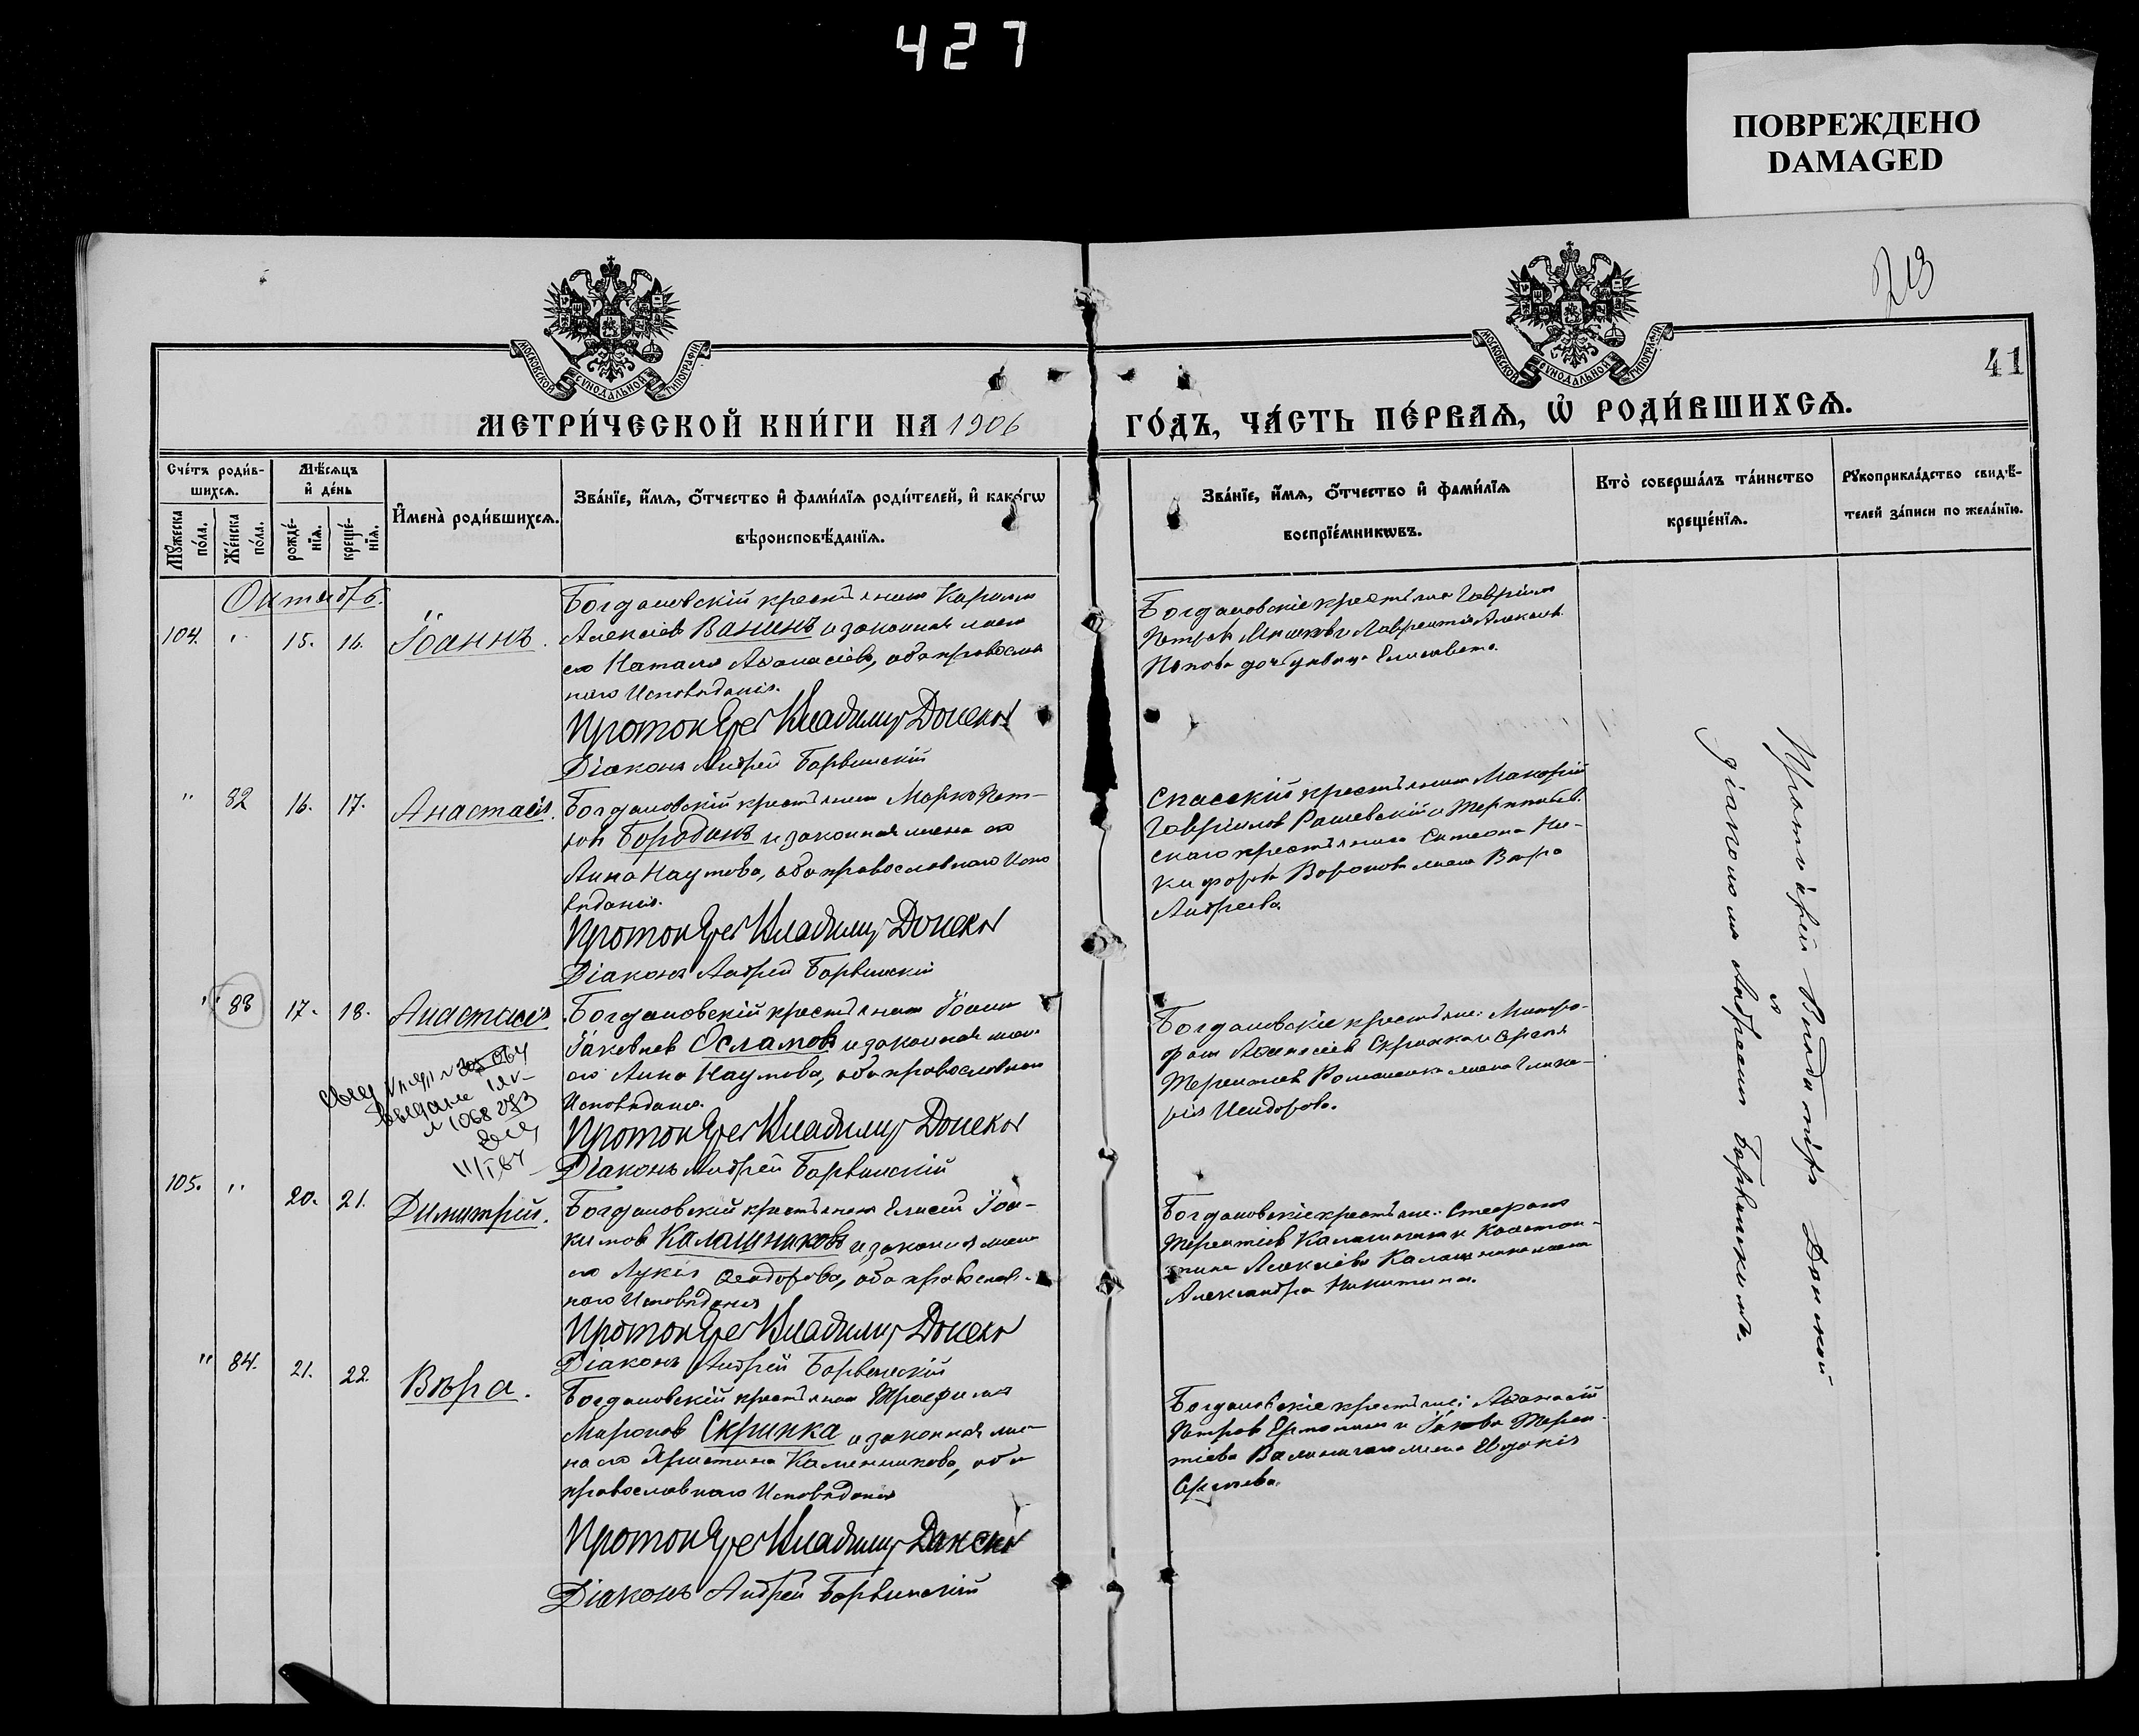 427
ПОВРЕЖДЕНО
DAMAGED
213
41
МОСКОВСКОЙ СѴНОДАЛЬНОЙ ТИПОГРАФІИ
МОСКОВСКОЙ СѴНОДАЛЬНОЙ ТИПОГРАФІИ
МЕТРИ́ЧЕСКОЙ КНИ́ГИ НА 1906 ГО́ДЪ, ЧА́СТЬ ПЕ́РВАѦ, Ѡ РОДИ́ВШИХСѦ.
Сче́тъ роди́в-
шихсѧ.
Мꙋ́жеска
по́ла.
Же́нска
по́ла.
Мѣ́сѧцъ
и де́нь
рожде́-
нїѧ.
креще́-
нїѧ.
Имена̀ роди́вшихсѧ.
Зва́нїе, и́мѧ, ѻ́тчество и фами́лїѧ роди́телей, и како́гѡ
вѣроисповѣ́данїѧ.
Зва́нїе, и́мѧ, ѻ́тчество и фами́лїѧ
воспрїе́мникѡвъ.
Кто̀ соверша́лъ та́инство
креще́нїѧ.
Рꙋкоприкла́дство свидѣ́-
телей за́писи по жела́нїю.
Октябрь.
104. " 15. 16. Іоаннъ.
Богдановскій крестьянинъ
Алексіевъ Ванинъ и законная жена
его Аѳанасіева, оба православ
наго Исповѣданія.
Протоіерей Владимір Донской
Діаконъ Андрей Борвинскій
Богдановскіе крестьяне Гавріилъ
Петровъ и Лаврентія Алексіева
Попова дочь дѣвица Елисавета.
" 82 16. 17. Анастасія.
Богдановскій крестьянинъ Марко Пет-
ровъ Бородинъ и законная жена его
Анна Наумова, оба православнаго Испо
вѣданія.
Протоіерей Владимір Донской
Діаконъ Андрей Борвинскій
Спасскій крестьянинъ Макарій
Гавріиловъ Рашевскій и
скаго крестьянина Симеона Ни-
кифорова Воронова жена Вѣра
Андреева.
" 83 17. 18. Анастасія
Богдановскій крестьянинъ Іоаннъ
Іаковлевъ Осламовъ и законная жена
его Анна Наумова, оба православнаго
Исповѣданія.
Протоіерей Владимір Донской
Діаконъ Андрей Борвинскій
Богдановскіе крестьяне: Митро-
фанъ Аѳанасіевъ Скрипка и Сергія
Романенка жена Глике-
рія Исидорова.
1068 273
105. " 20. 21. Димитрій.
Богдановскій крестьянинъ Елисей Іоа-
кимовъ Калашниковъ и законная жена
его Лукія Ѳеодорова, оба православ-
наго Исповѣданія
Протоіерей Владимір Донской
Діаконъ Андрей Борвинскій
Богдановскіе крестьяне: Стефанъ
Терентіевъ Калашниковъ и Констан-
тина Алексіева Калашникова жена
Александра Никитина.
" 84. 21. 22. Вѣра.
Богдановскій крестьянинъ Трофимъ
Мароновъ Скрипка и законная же-
на его Христина Каменникова, оба
православнаго Исповѣданія
Протоіерей Владимір Донской
Діаконъ Андрей Борвинскій
Богдановскіе крестьяне: Аѳанасій
Петровъ и Іакова Терен-
тіева жена Евдокія
Сергіева.
Протоіерей Владиміръ Донской
съ
діакономъ Андреемъ Борвинскимъ.